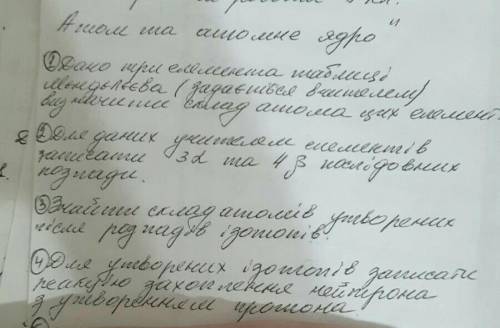 Атом та атомне ядро"
① Дано три елемента таблиці
Мендєлєєва (задається вчителем)
визначити склад атома цих елемент
② Для даних учителем елементів
записати 3α та 4β послідовних
розпади.
③ Знайти склад атомів утворених
після розпадів ізотопів.
④ Для утворених ізотопів записати
реакцію захоплення нейтрона
з утворенням протона!